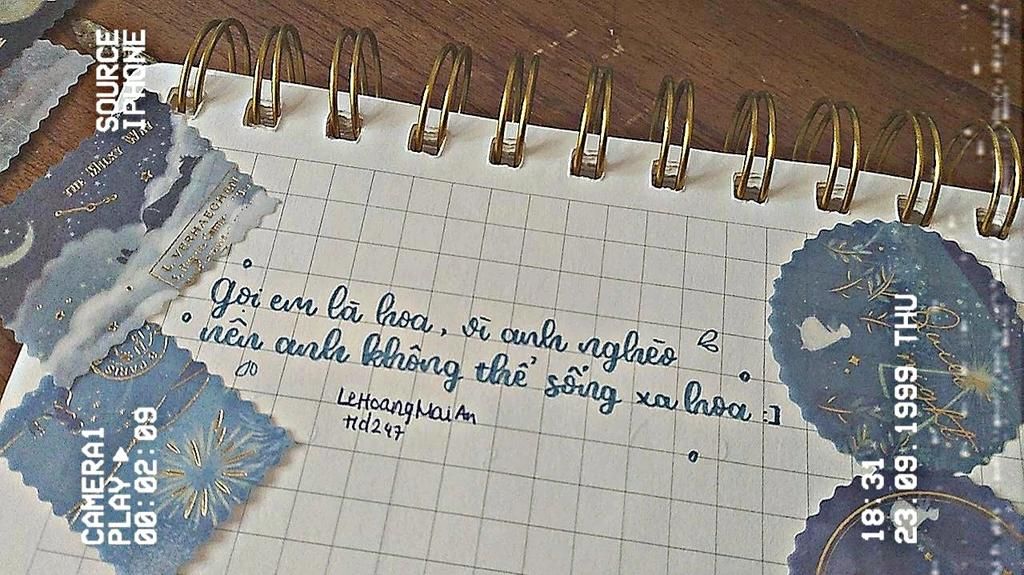 SOURCE
IPHONE
gọi em là hoa, vì anh nghèo
nên anh không thể sống xa hoa :]
LeHoangMaiAn
Hd247
CAMERA1
PLAY
00:02:09
18:31
23.09.1999 THU